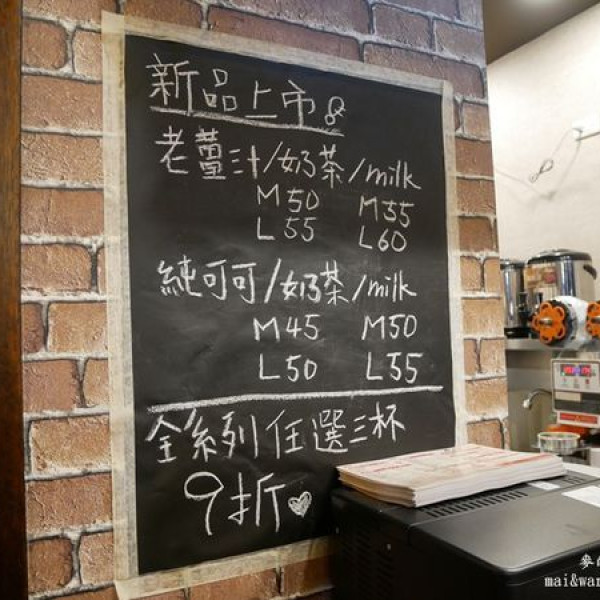 新品上市
老薑汁/奶茶/milk
M50 M55
L55 L60
純可可/奶茶/milk
M45 M50
L50 L55
全系列任選三杯
9折